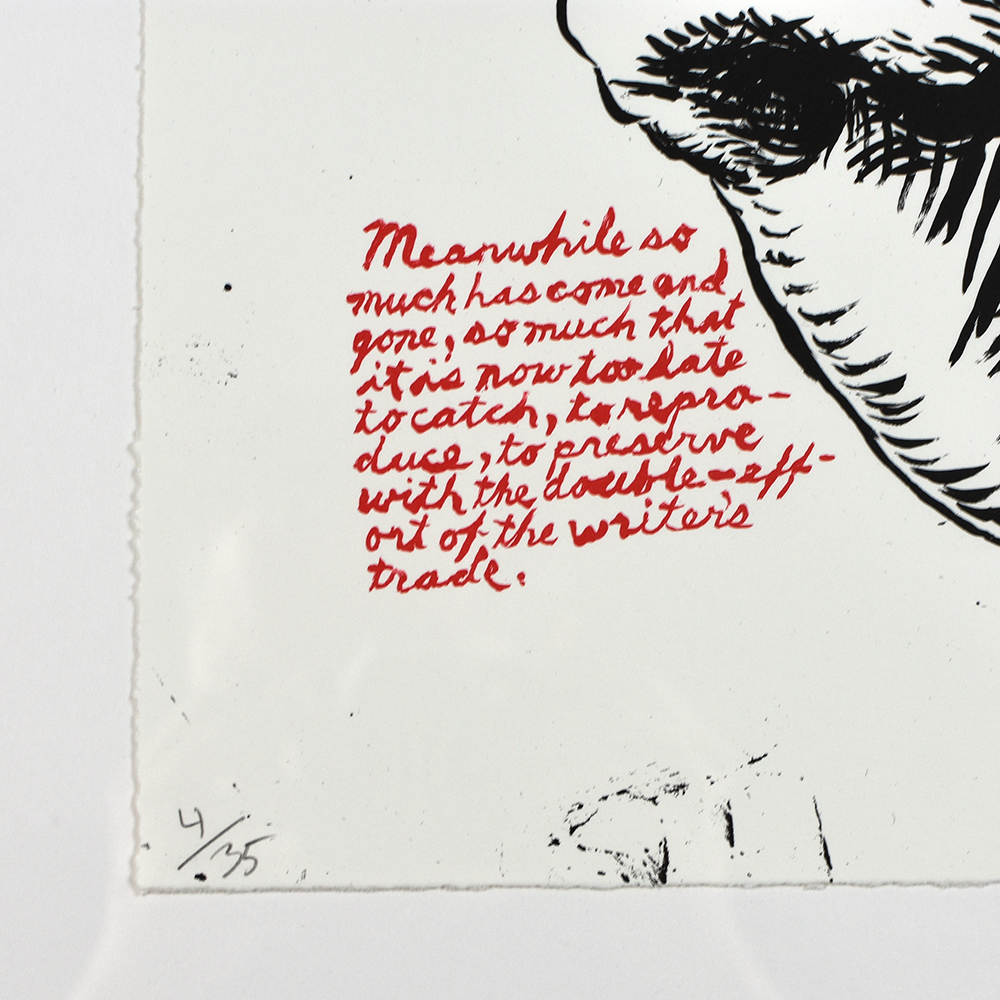 Meanwhile so
much has come and
gone, so much that
it is now too late
to catch, to repro-
duce, to preserve
with the double-eff-
ort of the writer's
trade.
4/35